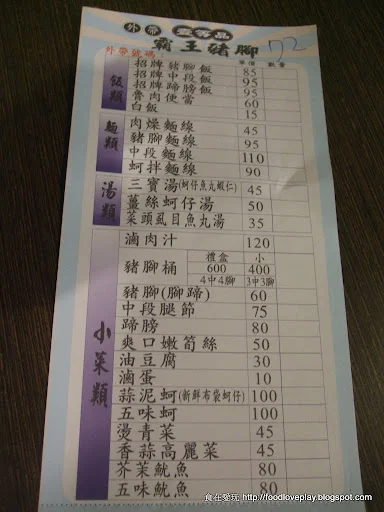 外帶 壹等品
霸王豬腳
外帶號碼: 172
單價 數量
飯類
招牌豬腳飯 85
招牌中段飯 95
招牌蹄膀飯 95
魯肉便當 60
白飯 15
麵類
肉燥麵線 45
豬腳麵線 95
中段麵線 110
蚵拌麵線 90
湯類
三寶湯(蚵仔魚丸蝦仁) 45
薑絲蚵仔湯 50
菜頭虱目魚丸湯 35
小菜類
滷肉汁 120
豬腳桶 禮盒 小
600 400
4中4腳 3中3腳
豬腳(腳蹄) 60
中段腿節 75
蹄膀 80
爽口嫩筍絲 50
油豆腐 30
滷蛋 10
蒜泥蚵(新鮮布袋蚵仔) 100
五味蚵 100
燙青菜 45
香蒜高麗菜 45
芥茉魷魚 80
五味魷魚 80
食在愛玩 http://foodloveplay.blogspot.com